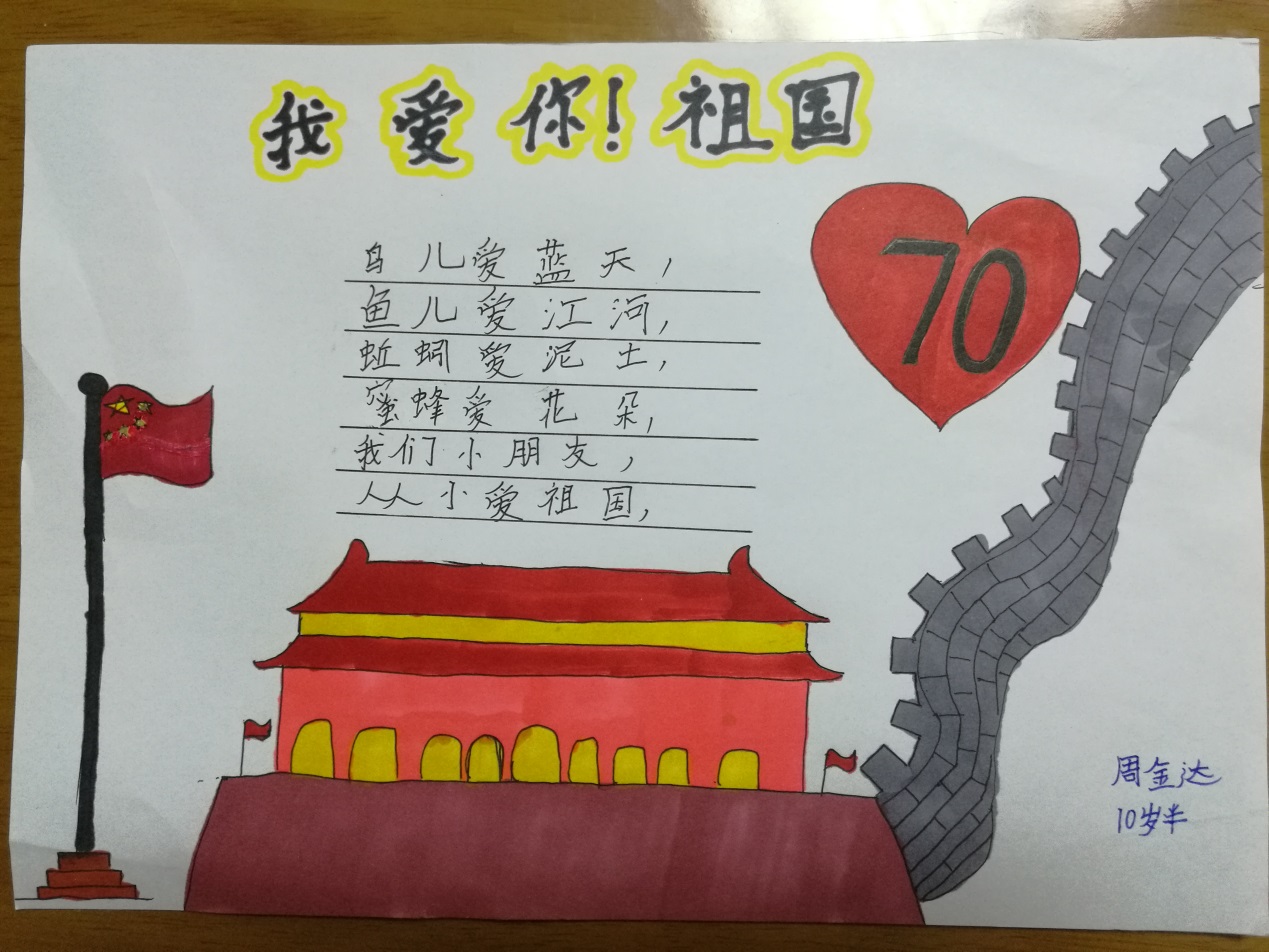 我爱你!祖国
70
鸟儿爱蓝天,
鱼儿爱江河,
蚯蚓爱泥土,
蜜蜂爱花朵,
我们小朋友,
人人小爱祖国,
周金达
10岁半